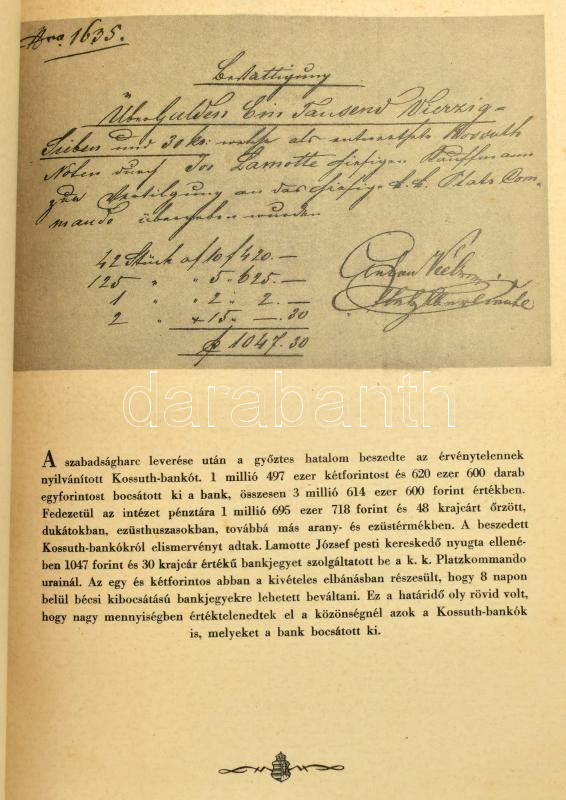 Nro. 1635.
Bestättigung
Über Gulden Ein Tausend Vierzig=
Sieben und 30 kr: welche als entwerthete Kossuth
Noten durch Jos Lamotte hiesigen Kaufmann
zur Vertilgung an das hiesige k.k. Platz Com=
mando übergeben wurden
42 Stück à f 10 f 420.—
125 " " 5 " 625.—
1 " " 2 " 2.—
2 " x 15 " —.30
f 1047.30
darabanth
A szabadságharc leverése után a győztes hatalom beszedte az érvénytelennek
nyilvánított Kossuth-bankót. 1 millió 497 ezer kétforintost és 620 ezer 600 darab
egyforintost bocsátott ki a bank, összesen 3 millió 614 ezer 600 forint értékben.
Fedezetül az intézet pénztára 1 millió 695 ezer 718 forint és 48 krajcárt őrzött,
dukátokban, ezüsthuszasokban, továbbá más arany- és ezüstérmékben. A beszedett
Kossuth-bankókról elismervényt adtak. Lamotte József pesti kereskedő nyugta ellené-
ben 1047 forint és 30 krajcár értékű bankjegyet szolgáltatott be a k. k. Platzkommando
urainál. Az egy és kétforintos abban a kivételes elbánásban részesült, hogy 8 napon
belül bécsi kibocsátású bankjegyekre lehetett beváltani. Ez a határidő oly rövid volt,
hogy nagy mennyiségben értéktelenedtek el a közönségnél azok a Kossuth-bankók
is, melyeket a bank bocsátott ki.